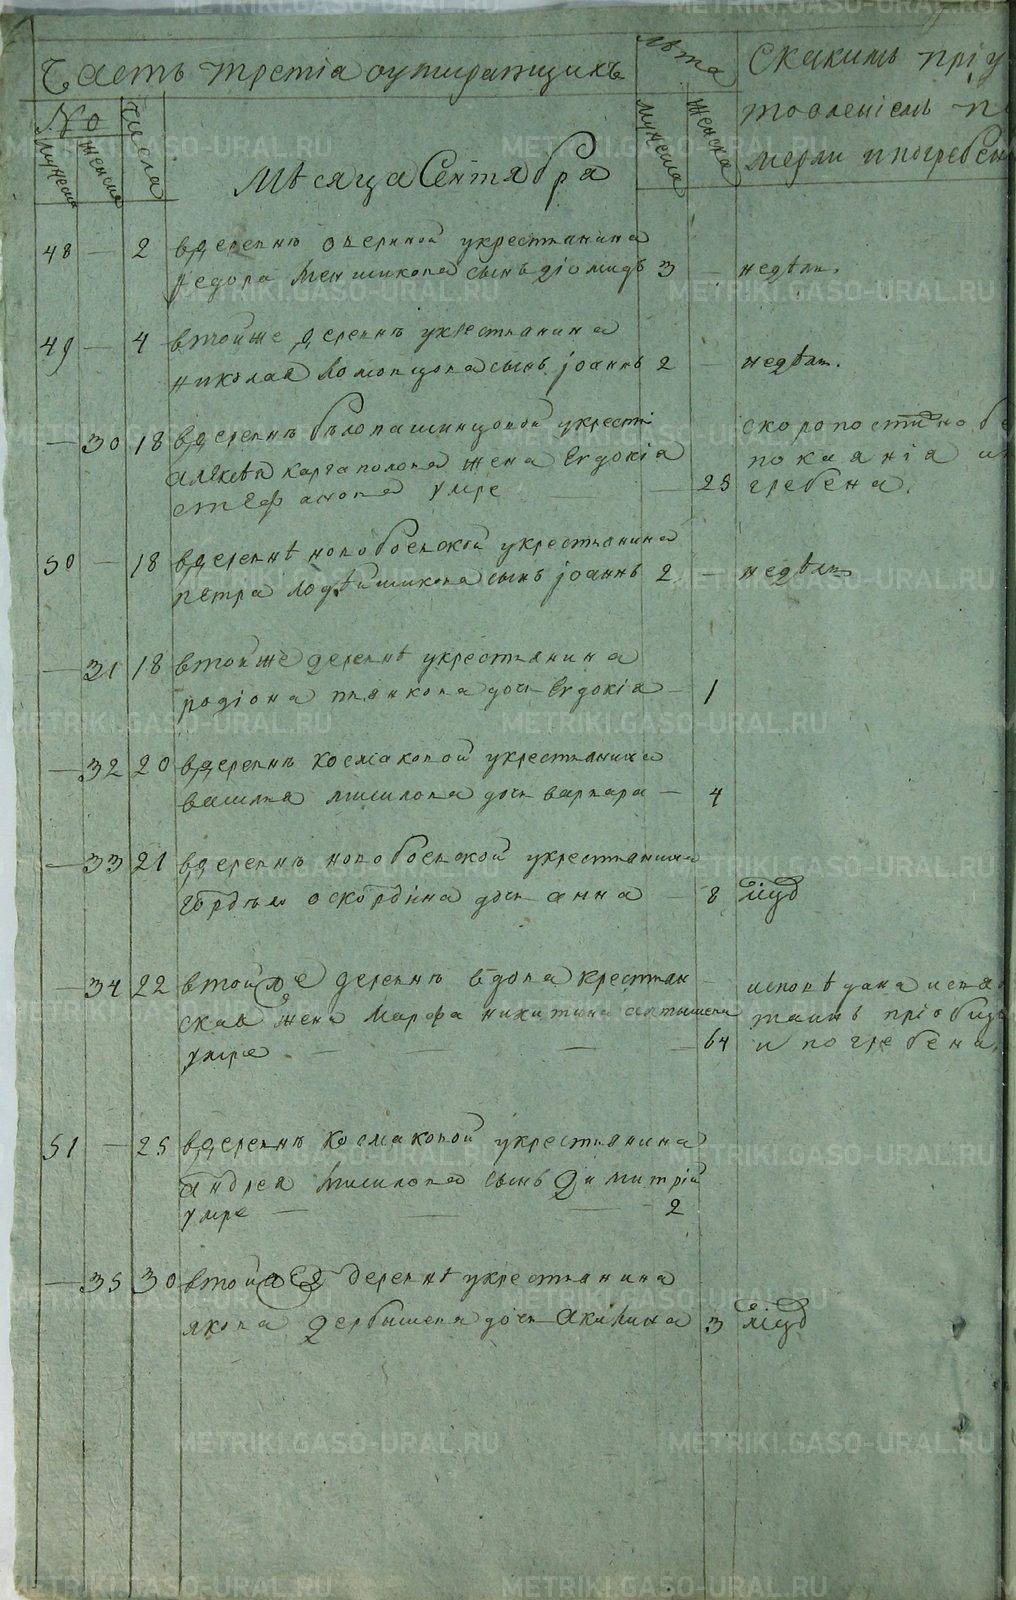 Часть третіа оумирающихъ
лѣта
Скакимъ пріу
No
числа
мужеска
женска
мужеска
женска
товленіемъ по
мерли ипогребен
Мѣсяца Сентября
48 — 2 вдеревнѣ озерной укрестьянина
Федора Меншикова сынъ діомидъ 3 — недѣль.
49 — 4 втойже деревнѣ укрестьянина
николая Ломовцова сынъ іоаннъ 2 — недѣль.
— 30 18 вдеревнѣ бѣлопашинцовой укрести
скоропостижно бе
Алѣксѣя Каргаполова жена Евдокіа
покаяніа ип
стефанова умре — 25 гребена.
50 — 18 вдеревнѣ новобоевской укрестьянина
петра Лодѣйшикова сынъ іоаннъ 2 — недѣль
— 31 18 втойже деревнѣ укрестьянина
родіона пьянкова дочь Евдокіа — 1
— 32 20 вдеревнѣ Космаковой укрестьянина
василья шишлова дочь варвара — 4
— 33 21 вдеревнѣ новобоевской укрестьянина
гордѣя оскордина дочь анна — 8 міцѣ
— 34 22 втойже деревнѣ вдова крестьян
исповѣдана исвя
ская жена Марфа никитина
таинъ пріобще
умре — — — 64 и погребена.
51 — 25 вдеревнѣ Космаковой укрестьянина
андрея шишлова сынъ Димитрій
умре — — — 2
— 35 30 втойже деревнѣ укрестьянина
якова Дербышева дочь Акилина 3 міцѣ
METRIKI.GASO-URAL.RU